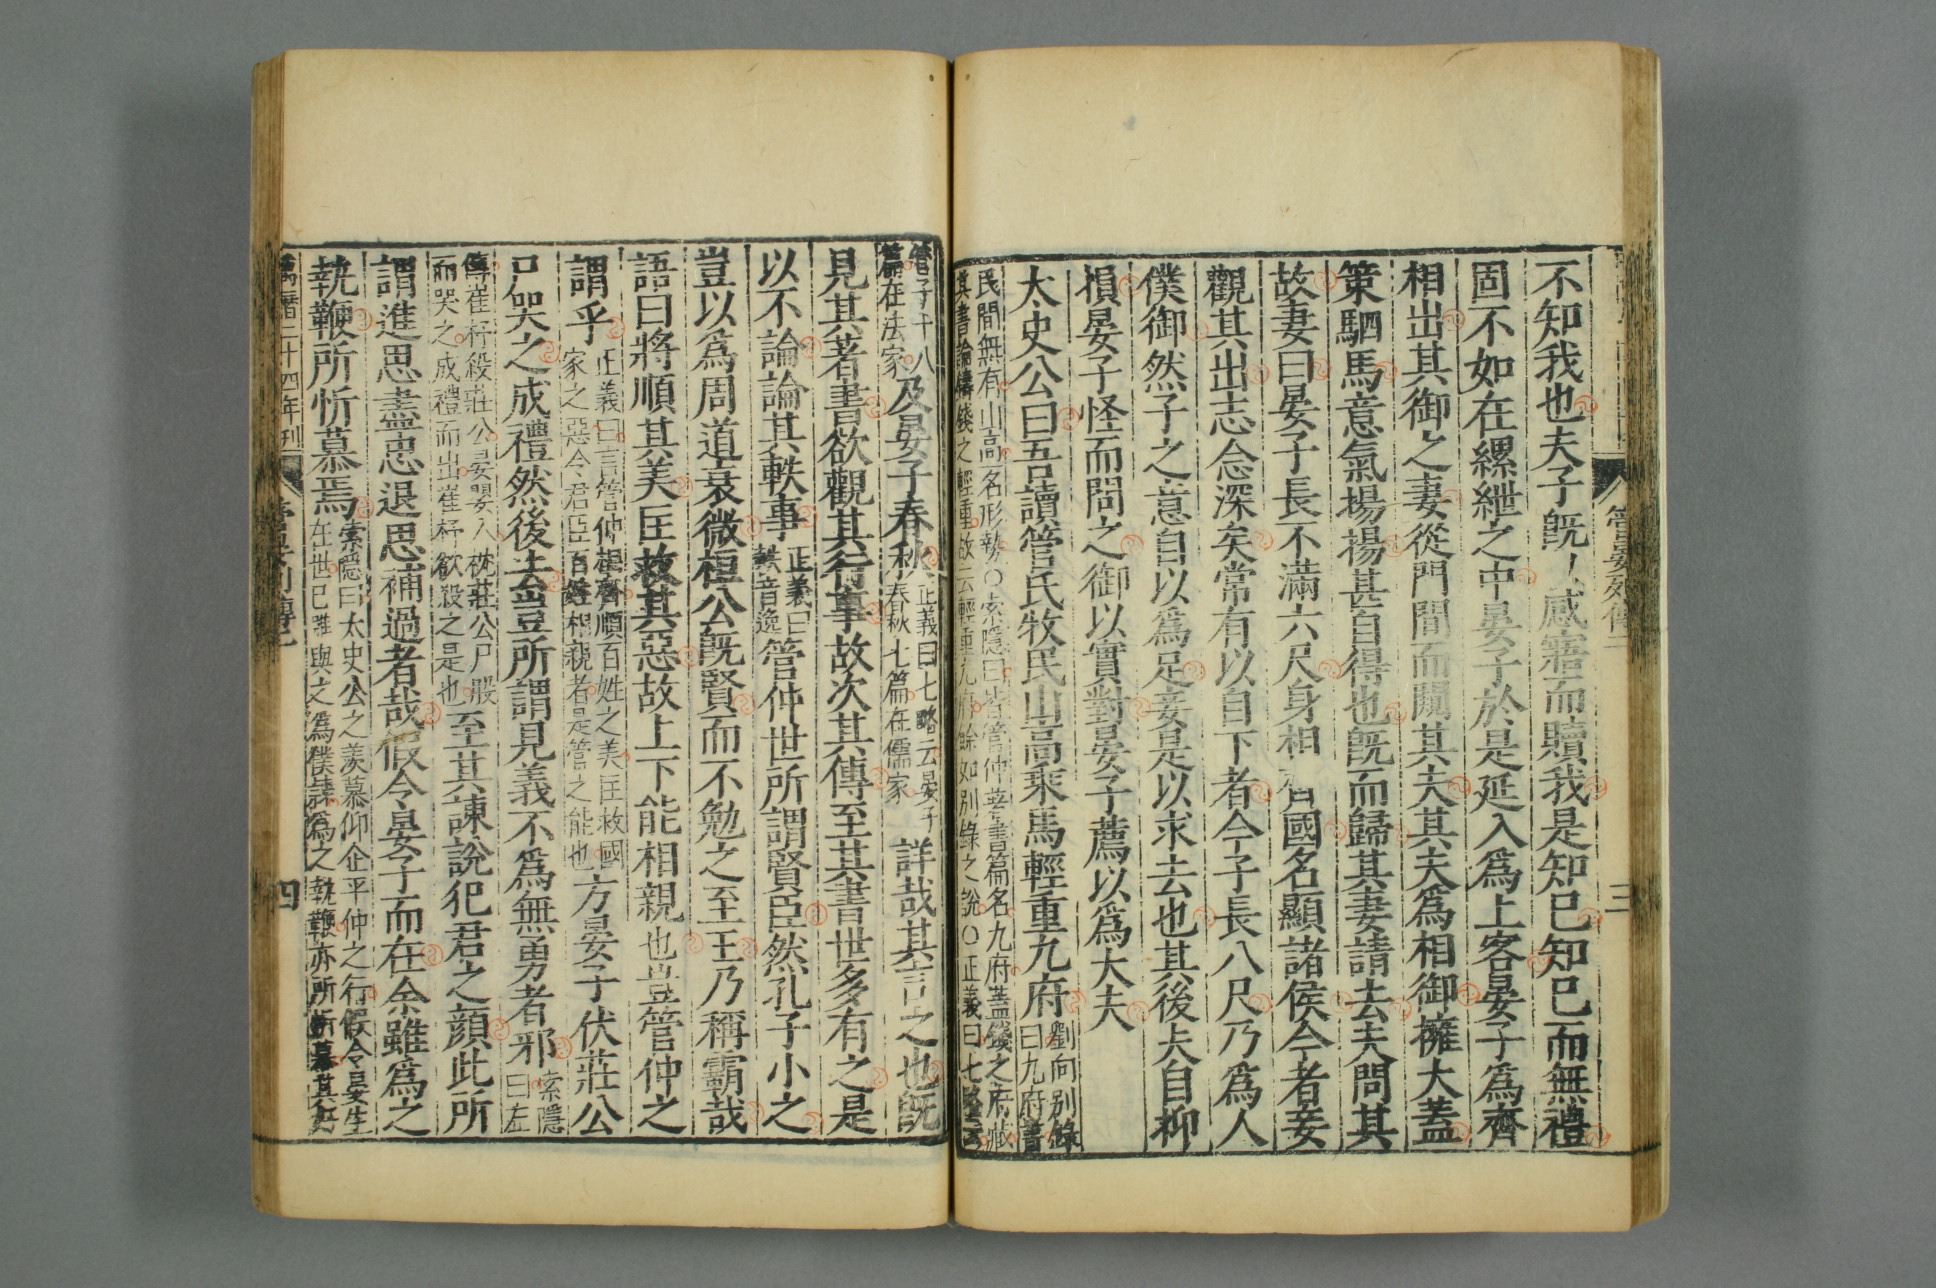 管晏列傳
三
不知我也夫子旣以感寤而贖我是知己知己而無禮
固不如在縲紲之中晏子於是延入爲上客晏子爲齊
相出其御之妻從門間而闚其夫其夫爲相御擁大蓋
策駟馬意氣揚揚甚自得也旣而歸其妻請去夫問其
故妻曰晏子長不滿六尺身相齊國名顯諸侯今者妾
觀其出志念深矣常有以自下者今子長八尺乃爲人
僕御然子之意自以爲足妾是以求去也其後夫自抑
損晏子怪而問之御以實對晏子薦以爲大夫
太史公曰吾讀管氏牧民山高乘馬輕重九府劉向別錄曰九府書
民間無有山高名形勢○索隱曰皆管仲著書篇名九府蓋錢之府藏
其書論鑄錢之輕重故云輕重九府餘如別錄之說○正義曰七略云
管子十八篇在法家及晏子春秋正義曰七略云晏子春秋七篇在儒家詳哉其言之也旣
見其著書欲觀其行事故次其傳至其書世多有之是
以不論論其軼事正義曰軼音逸管仲世所謂賢臣然孔子小之
豈以爲周道衰微桓公旣賢而不勉之至王乃稱霸哉
語曰將順其美匡救其惡故上下能相親也豈管仲之
謂乎正義曰言管仲相齊順百姓之美匡救國家之惡令君臣百姓相親者是管之能也方晏子伏莊公
尸哭之成禮然後去豈所謂見義不爲無勇者邪索隱曰左
傳崔杼殺莊公晏嬰入枕莊公尸股
而哭之成禮而出崔杼欲殺之是也至其諫說犯君之顔此所
謂進思盡忠退思補過者哉假令晏子而在余雖爲之
執鞭所忻慕焉索隱曰太史公之羨慕仰企平仲之行假令晏生在世己雖與之爲僕隷爲之執鞭亦所忻慕其好
萬曆二十四年刊
管晏列傳
四